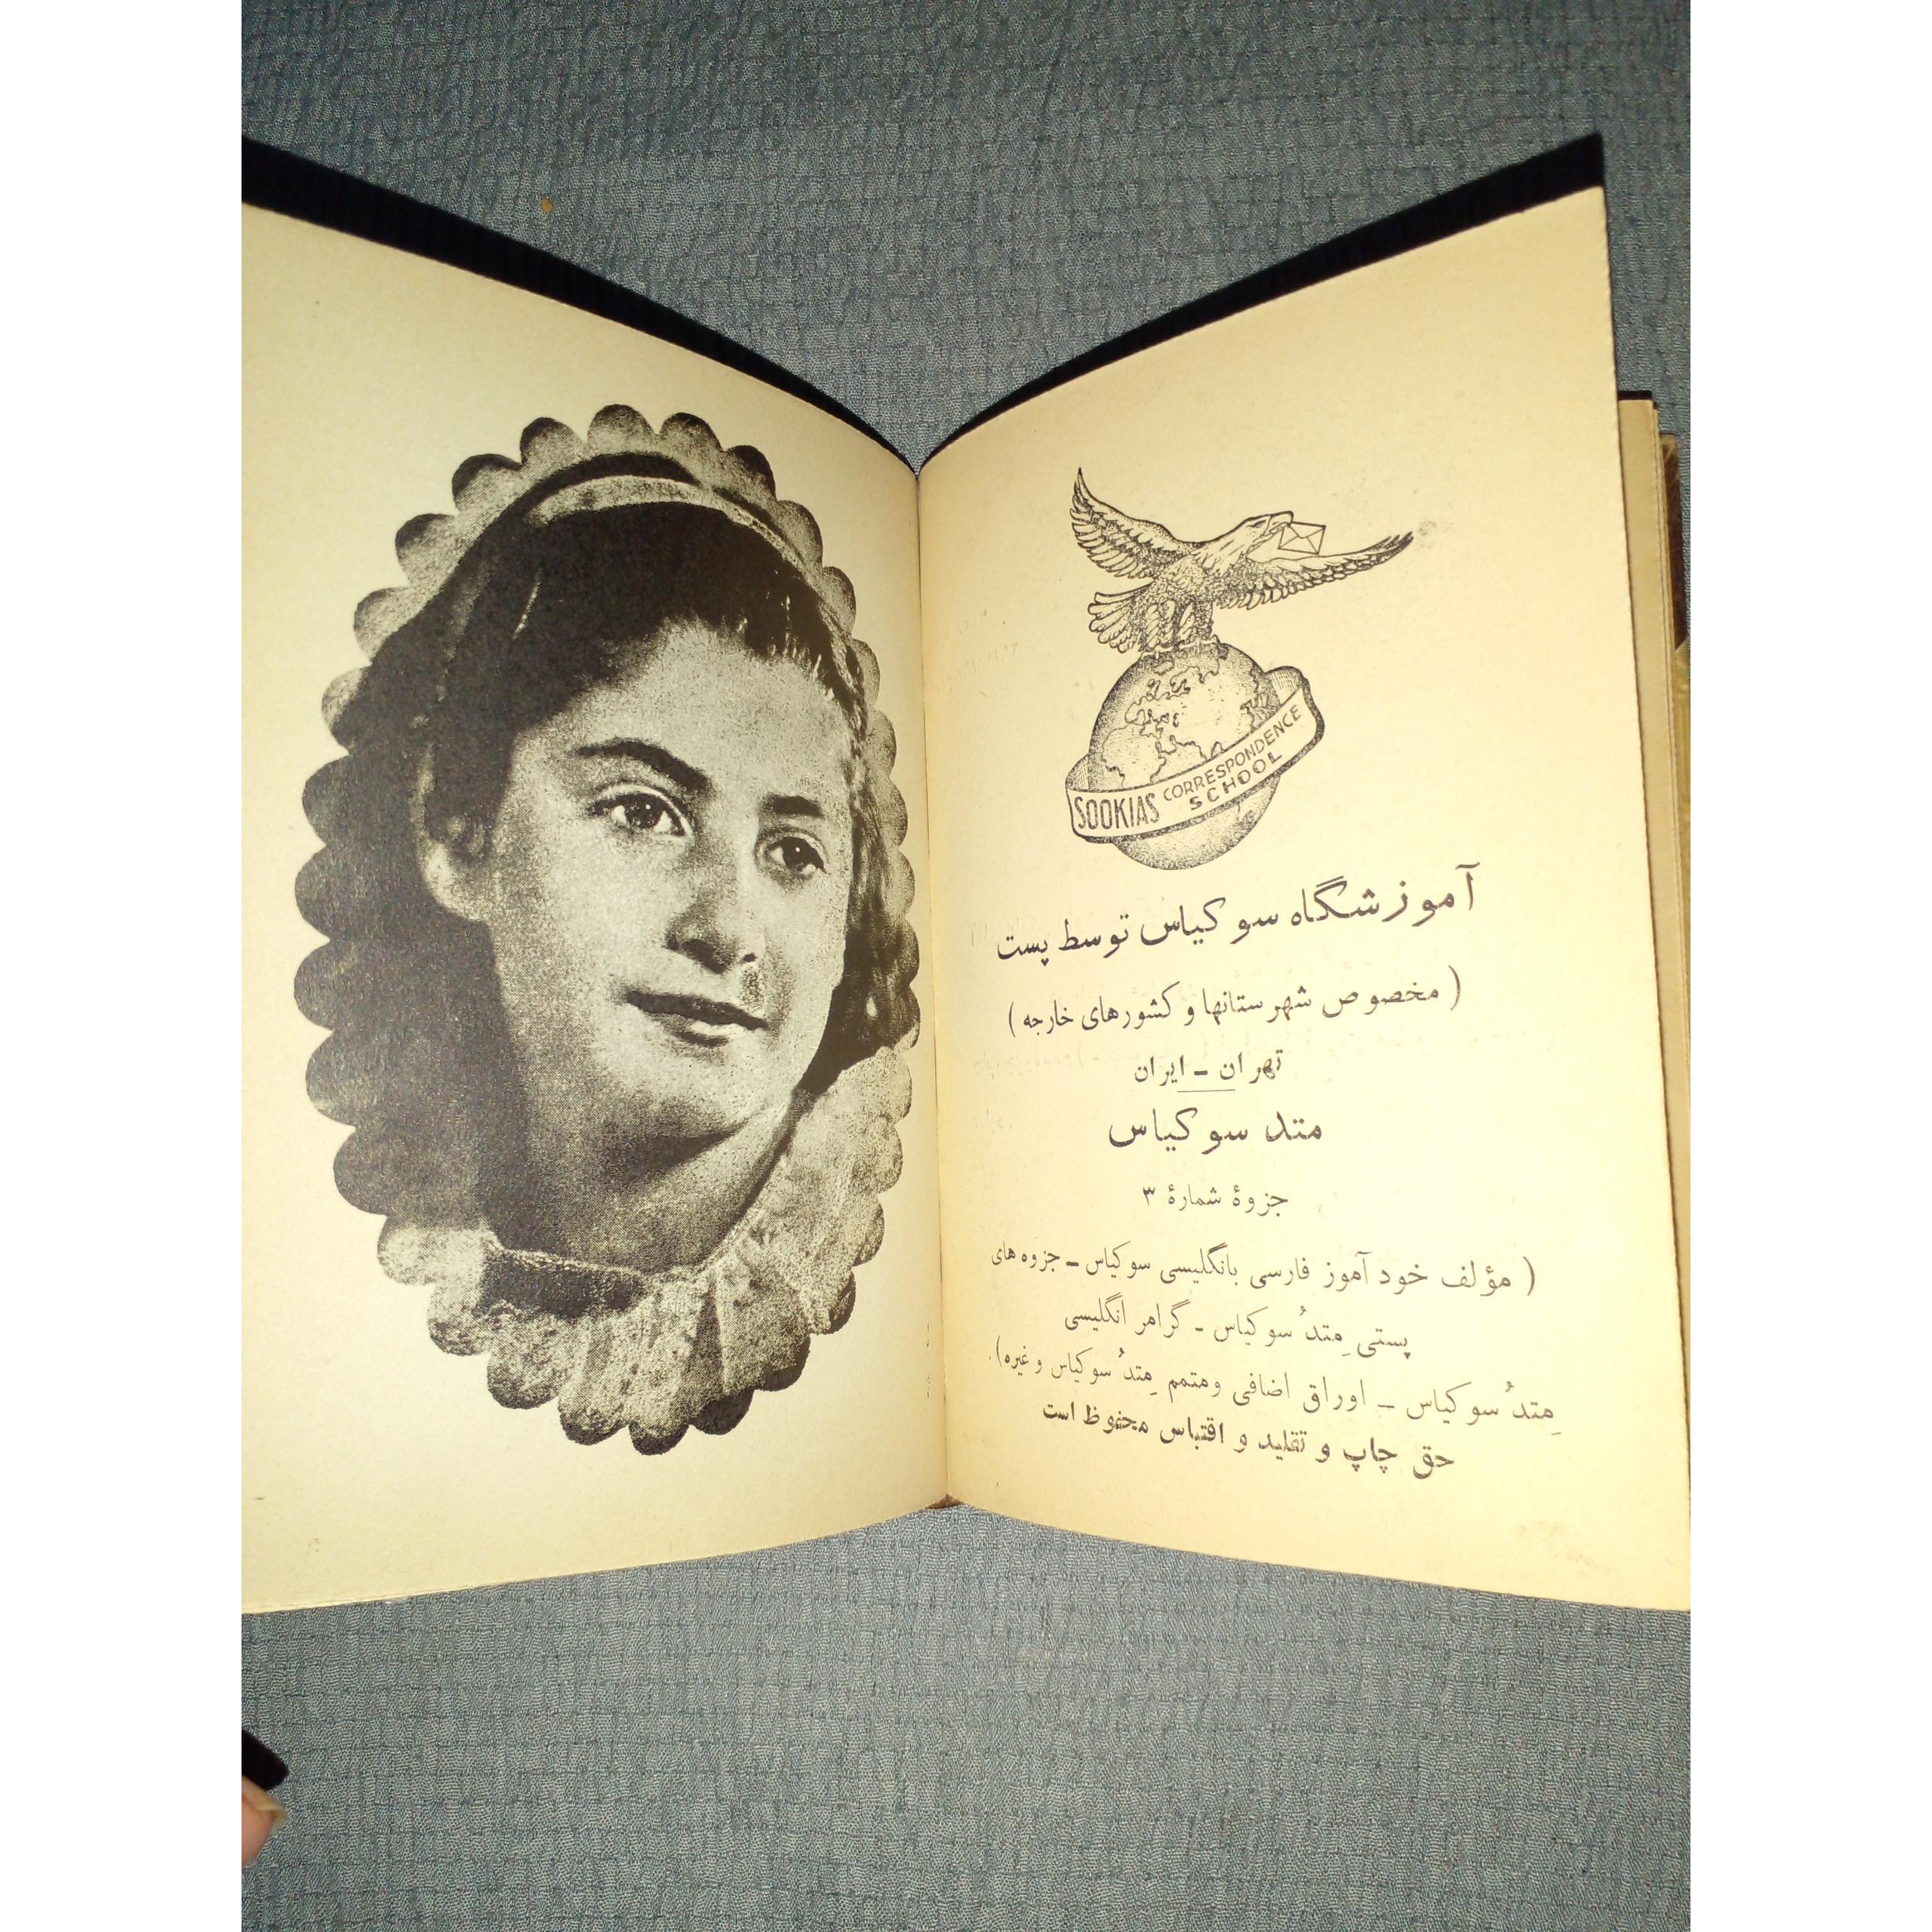 SOOKIAS CORRESPONDENCE
SCHOOL
آموزشگاه سوکیاس توسط پست
( مخصوص شهرستانها و کشورهای خارجه )
تهران - ایران
متد سوکیاس
جزوهٔ شمارهٔ ۳
( مؤلف خودآموز فارسی بانگلیسی سوکیاس - جزوه‌های
پستی مِتدُ سوکیاس - گرامر انگلیسی
مِتدُ سوکیاس - اوراق اضافی ومتمم مِتدُ سوکیاس و غیره).
حق چاپ و تقلید و اقتباس محفوظ است